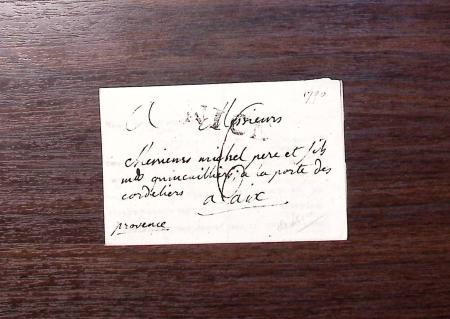 1790
A Messieurs
NICE
Messieurs michel pere et fils
mds quincailliers, a la porte des
cordeliers
a aix
provence